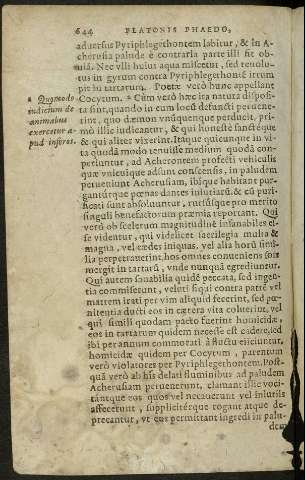 644 PLATONIS PHAEDO,
aduersus Pyriphlegethontem labitur, & in A-
cherusia palude è contraria parte illi fit ob-
uiã. Nec vlli huius aqua miscetur, sed reuolu-
tus in gyrum contra Pyriphlegethontẽ irrum
pit in tartarum. Poetæ verò hunc appellant
Cocytum. * Cùm verò hæc ita natura disposi-
* Quomodo
iudicium de
animabus
exercetur a-
pud inferos.
ta sint, quando in eum locũ defuncti peruene-
rint, quo dæmon vnũquenque perducit, pri-
mò illic iudicantur, & qui honestè sanctéque
& qui aliter vixerint. Itáque quicunque in vi-
ta quodã modo tenuisse medium quodã com-
periuntur, ad Acherontem profecti vehiculis
quæ vnicuique adsunt conscensis, in paludem
perueniunt Acherusiam, ibíque habitant pur-
gantúrque pœnas dantes iniuriarũ: & cũ puri-
ficati sunt absoluuntur, rursúsque pro merito
singuli benefactorum præmia reportant. Qui
verò ob scelerum magnitudinẽ insanabiles es-
se videntur, qui videlicet sacrilegia multa &
magna, vel cædes iniquas, vel alia horũ simi-
lia perpetrauerint, hos omnes conueniens sors
mergit in tartarũ, vnde nunquã egrediuntur.
Qui autem sanabilia quidẽ peccata, sed ingen-
tia commiserunt, veluti siqui contra patrẽ vel
matrem irati per vim aliquid fecerint, sed pœ-
nitentia ducti eos in cætera vita coluerint, vel
qui simili quodam pacto fuerint homicidæ,
eos in tartarum quidem necesse est cadere, sed
ibi per annum commorati à fluctu eiiciuntur,
homicidæ quidem per Cocytum, parentum
verò violatores per Pyriphlegethontem. Post-
quã verò ab his delati fluminibus ad paludem
Acherusiam peruenerunt, clamant illîc voci-
tántque eos quos vel necauerunt vel iniuriis
affecerunt, supplicitérque rogant atque de-
precantur, vt eos permittant ingredi in palu-
dem